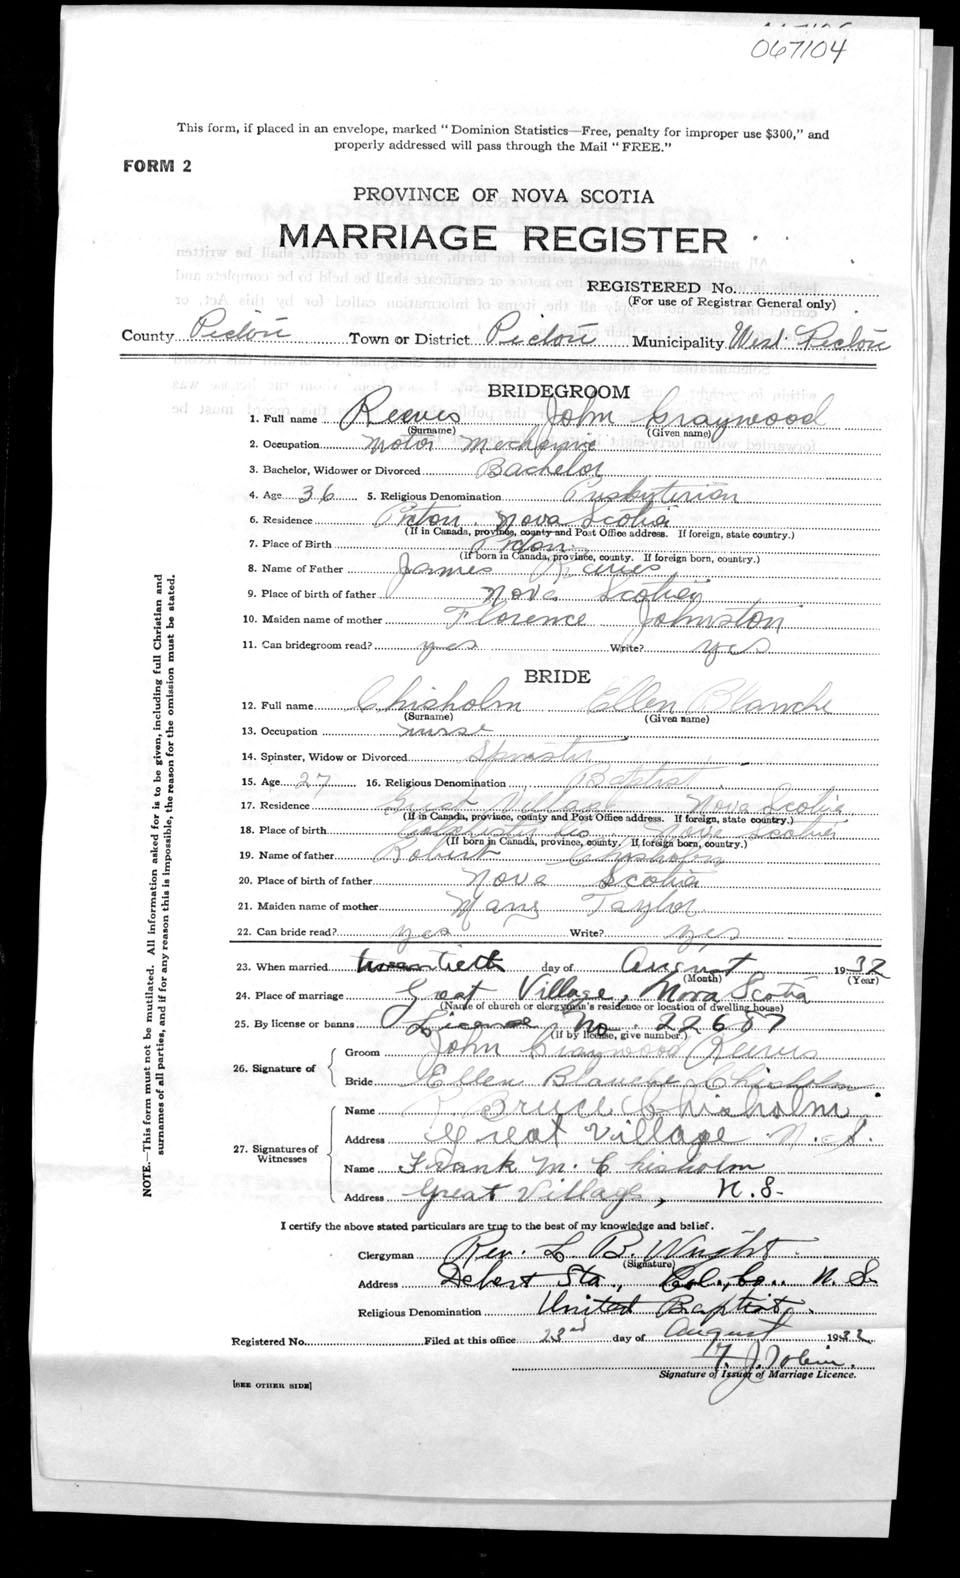 067104
This form, if placed in an envelope, marked "Dominion Statistics—Free, penalty for improper use $300," and
properly addressed will pass through the Mail "FREE."
FORM 2
PROVINCE OF NOVA SCOTIA
MARRIAGE REGISTER
REGISTERED No.
(For use of Registrar General only)
County Pictou Town or District Pictou Municipality West Pictou
BRIDEGROOM
1. Full name Reeves John Graywood
(Surname) (Given name)
2. Occupation Motor Mechanic
3. Bachelor, Widower or Divorced Bachelor
4. Age 36 5. Religious Denomination Presbyterian
6. Residence Pictou Nova Scotia
(If in Canada, province, county and Post Office address. If foreign, state country.)
7. Place of Birth Pictou
(If born in Canada, province, county. If foreign born, country.)
8. Name of Father James Reeves
9. Place of birth of father Nova Scotia
10. Maiden name of mother Florence Johnston
11. Can bridegroom read? yes Write? yes
BRIDE
12. Full name Chisholm Ellen Blanche
(Surname) (Given name)
13. Occupation nurse
14. Spinster, Widow or Divorced Spinster
15. Age 27 16. Religious Denomination Baptist
17. Residence Great Village Nova Scotia
(If in Canada, province, county and Post Office address. If foreign, state country.)
18. Place of birth Co Nova Scotia
(If born in Canada, province, county. If foreign born, country.)
19. Name of father Robert Chisholm
20. Place of birth of father Nova Scotia
21. Maiden name of mother Mary Taylor
22. Can bride read? yes Write? yes
23. When married twentieth day of August 1932
(Month) (Year)
24. Place of marriage Great Village, Nova Scotia
(Name of church or clergyman's residence or location of dwelling house)
25. By license or banns License No. 22687
(if by license, give number.)
26. Signature of
Groom John Graywood Reeves
Bride Ellen Blanche Chisholm
27. Signatures of Witnesses
Name R. Bruce Chisholm
Address Great Village N.S.
Name Frank M. Chisholm
Address Great Village, N.S.
I certify the above stated particulars are true to the best of my knowledge and belief.
Clergyman Rev. L. B. Wright
(Signature)
Address Debert Sta., Col. Co. N.S.
Religious Denomination United Baptist
Registered No. Filed at this office 23rd day of August 1932
J. Tobin.
Signature of Issuer of Marriage Licence.
[SEE OTHER SIDE]
NOTE.—This form must not be mutilated. All information asked for is to be given, including full Christian and
surnames of all parties, and if for any reason this is impossible, the reason for the omission must be stated.